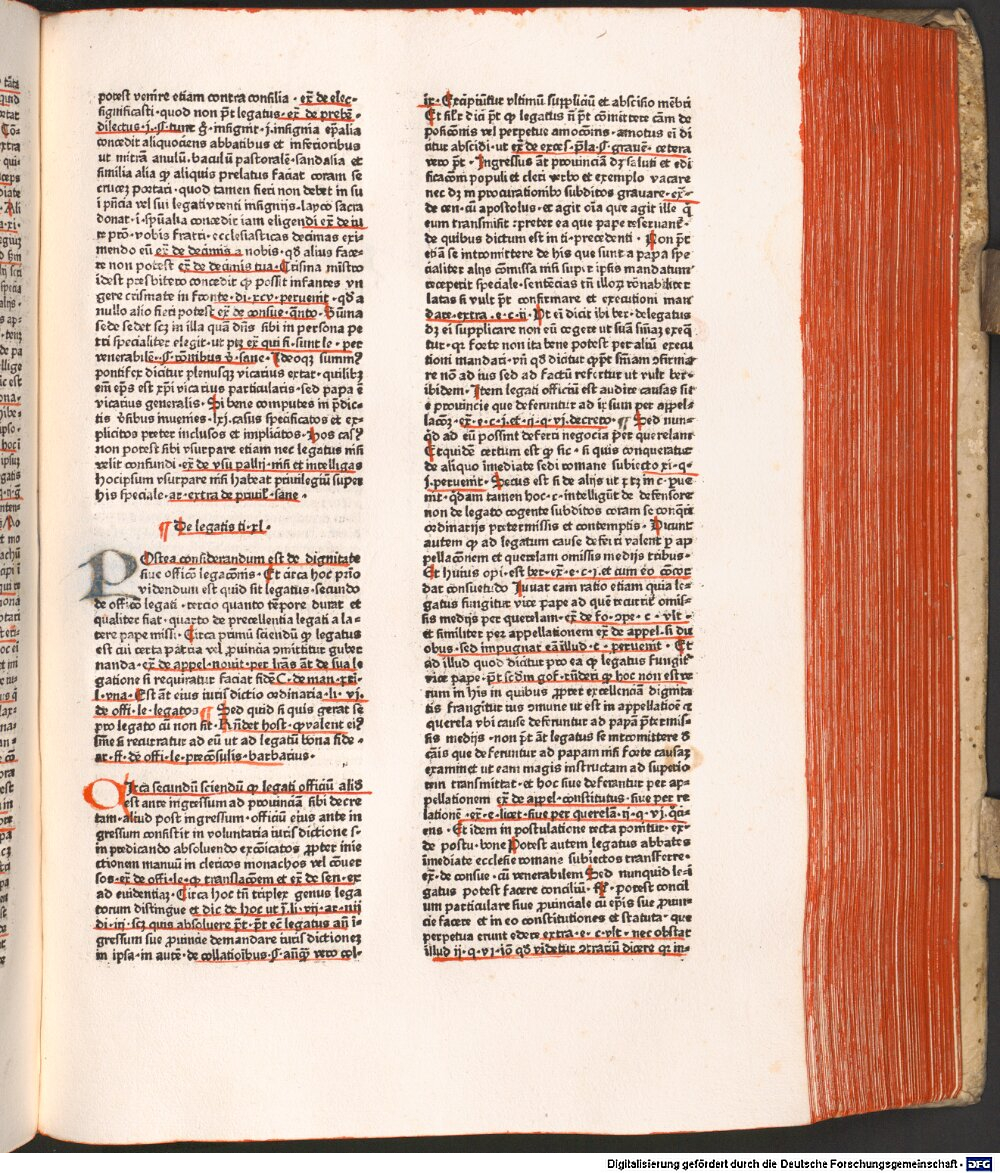 potest venire etiam contra consilia · ex̄ de elec-
significasti · quod non pōt legatus · ex̄ de prebē ·
dilectus · j · §. tunc g̃ · insignit · j · insignia epālia
concedit aliquociens abbatibus et inferioribus
ut mitrā anulū · baculū pastoralē · sandalia et
similia alia qƥ aliquis prelatus faciat coram se
crucez portari · quod tamen fieri non debet in su
i pñcia vel sui legati venti insignijs · layco sacra
donat · i · spūalia concedit iam eligendi ex̄ de iu
re prō · vobis fratri · ecclesiasticas decimas exi-
mendo eū ex̄ de decimis a nobis · qd̄ alius face-
re non potest ex̄ de decimis tua · Crisina mīstro
idest presbitero concedit qƥ possit infantes vn
gere crismate in fronte · di · xcv · peruenit · qd̄ a
nullo alio fieri potest ex̄ de consue · q̄nto · Sūma
sede sedet scz̄ in illa quā dn̄s sibi in persona pe
tri specialiter elegit · ut prz ex̄ qui fi · sunt le · per
venerabilē · §. rōnibus v̄ · sane · Ideoqz summꝰ
pontifex dicitur plenusqz vicarius extat · quilibz
em̄ ep̄s est xp̄i vicarius particularis · sed papa ē
vicarius generalis · Si bene computes in p̄dic-
tis v̄sibus inuenies · lxj · casus specificatos et ex-
plicitos preter inclusos et implicitos · Hos casꝰ
non potest sibi vsurpare etiam nec legatus nisi
velit confundi · ex̄ de vsu pallij · nisi et intelligas
hoc ipsum vsurpare nisi habeat priuilegiū super
his speciale · ar · extra de priuil · sane ·
¶ De legatis ti · xl ·
POstea considerandum est de dignitate
siue officō legacōnis · Et circa hoc prīo
videndum est quid sit legatus · secundo
de officō legati · tercio quanto tēpore durat et
qualiter fiat · quarto de precellentia legati a la-
tere pape missi · Circa primū sciendū qƥ legatus
est cui certa patria vel ꝓuincia ōmittitur guber
nanda · ex̄ de appel · nouit · per lr̄as āt de sua le
gatione si requiratur faciat fidē C · de man · xti-
l · vna · Est āt eius iuris dictio ordinaria · li · vi ·
de offi · le · legatos ¶ Sed quid si quis gerat se
pro legato cū non sit · Rn̄det host · qƥ valent eiꝰ
sn̄ie si recurratur ad eū ut ad legatū bona fide ·
ar · ff · de offi · le · preconsulis · barbarius ·
CIrca secundū sciendū qƥ legati officiū aliud
est ante ingressum ad prouinciā sibi decre
tam · aliud post ingressum · officiū eius ante in
gressum consistit in voluntaria iuris dictione s-
in predicando absoluendo excōicatos ꝓpter inie
ctionem manuū in clericos monachos vel cōuer
sos · ex̄ de offi · le · qƥ translacōem et ex̄ de sen · ex
ad euidentiaz · Circa hoc tn̄ triplex genus lega
torum distingue et dic de hoc ut j · li · vij · ar · iiij
di · iij · scz̄ quis absoluere pōt · pōt ec̄ legatus an̄ i
gressum sue ꝓuincie demandare iuris dictionez
in ipsa · in autē · de collatioibus · §. an̄qƥ vero col-
ix · Excipiūtur vltimū suppliciū et abscisio mēbri
Et silr̄ dici pōt qƥ legatus n̄ pōt cōmittere cām de
posicōnis vel perpetue amocōnis · amotus em̄ di
citur abscidi · ut ex̄ de exces · p̄la · §. grauē · cetera
vero pōt · Ingressus āt prouinciā dz̄ saluti et edi
ficacōni populi et cleri verbo et exemplo vacare
nec dz̄ in procurationibꝰ subditos grauare · ex̄-
de cen · cū apostolus · et agit oīa que agit ille q̄
eum transmisit · preter ea que pape reseruant̄ ·
de quibus dictum est in ti · precedenti · Non pōt
etiā se intromittere de his que sunt a papa spe
cialiter alijs cōmissa nisi super ipsis mandatum
receperit speciale · sentēcias tn̄ illoꝝ rōnabiliter
latas si vult pōt confirmare et executioni man
dare · extra · e · c · ij · Ut ei dicit ibi ber · delegatus
dz̄ ei supplicare non eū cogere ut suā sn̄iaz exeq̄
tur · qr̄ forte non ita bene potest per aliū execu
tioni mandari · vn̄ qd̄ dicitur qƥ pōt sn̄iam ɔfirma
re non ad ius sed ad factū refertur ut vult ber-
ibidem · Item legati officiū est audire causas sue
prouincie que deferuntur ad ipsum per appel-
lacōez · ex̄ · e · c · j · et · ij · q · vj · decreto · ¶ Sed nun-
qd̄ ad eū possint deferri negocia per querelam
Et quidē certum est qƥ sic · si quis conqueratur
de aliquo īmediate sedi romane subiecto xi · q ·
j · peruenit · Secus est si de alijs ut xtz̄ in c · pue
nit · qd̄am tamen hoc · c · intelligūt de defensore
non de legato cogente subditos coram se conqueri
ordinarijs pretermissis et contemptis · Dicunt
autem qƥ ad legatum cause deferri valent p ap
pellacōnem et querelam omissis medijs tribus ·
Et huius opi · est ber · ex̄ · e · c · j · et cum eo cōcor
dat consuetudo Iuuat eam ratio etiam quia le-
gatus fungitur vice pape ad quē recurrit̄ omis-
sis medijs per querelam · ex̄ de fo · ɔpe · c · vlt ·
et similiter per appellationem ex̄ de appel · si du
obus · sed impugnat eā illud · c · peruenit · Et
ad illud quod dicitur pro ea qƥ legatus fungit̄
vice pape · pōt scd̄m gof · rn̄deri qƥ hoc non est ve
rum in his in quibus ꝓpter excellenciā dignita
tis frangitur ius ɔmune ut est in appellatiōe et
querela vbi cause deferuntur ad papā p̄termis-
sis medijs · non pōt āt legatus se intromittere d̄
cāis que deferuntur ad papam nisi forte causaz
examinet ut eam magis instructam ad superio
rem transmittat · et hoc siue deferantur per ap-
pellationem ex̄ de appel · constitutus · siue per re
lationē · ex̄ · e · licet · siue per querelā · ij · q · vj · q̄ci-
ens · Et idem in postulatione recta ponitur · ex̄-
de postu · bone Potest autem legatus abbates
īmediate ecclesie romane subiectos transferre ·
ex̄ · de consue · cū venerabilem Sed nunquid le-
gatus potest facere conciliū · R̄ · potest concil
um particulare siue ꝓuinciale cū ep̄is sue ꝓuin-
cie facere et in eo constitutiones et statuta · que
perpetua erunt edere extra · e · c · vlt · nec obstat
illud ij · q · vj · iō qd̄ videtur ɔtrariū dicere qr̄ in-
Digitalisierung gefördert durch die Deutsche Forschungsgemeinschaft - DFG